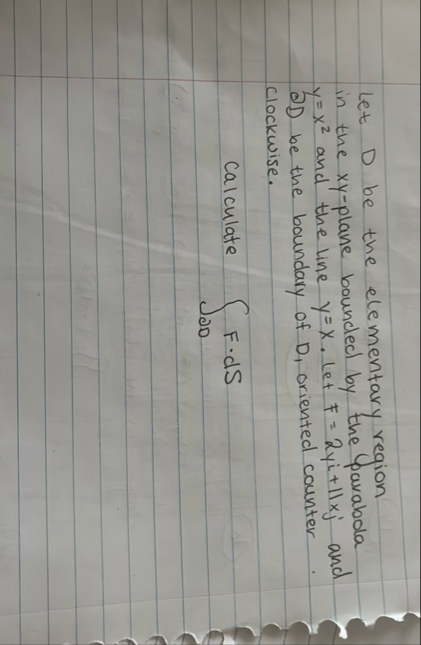 Let D be the elementary region
in the xy-plane bounded by the parabola
y = x² and the line y = x. Let F = 2yi + 11xj and
∂D be the boundary of D, oriented counter
clockwise.
Calculate ∫∂D F · dS